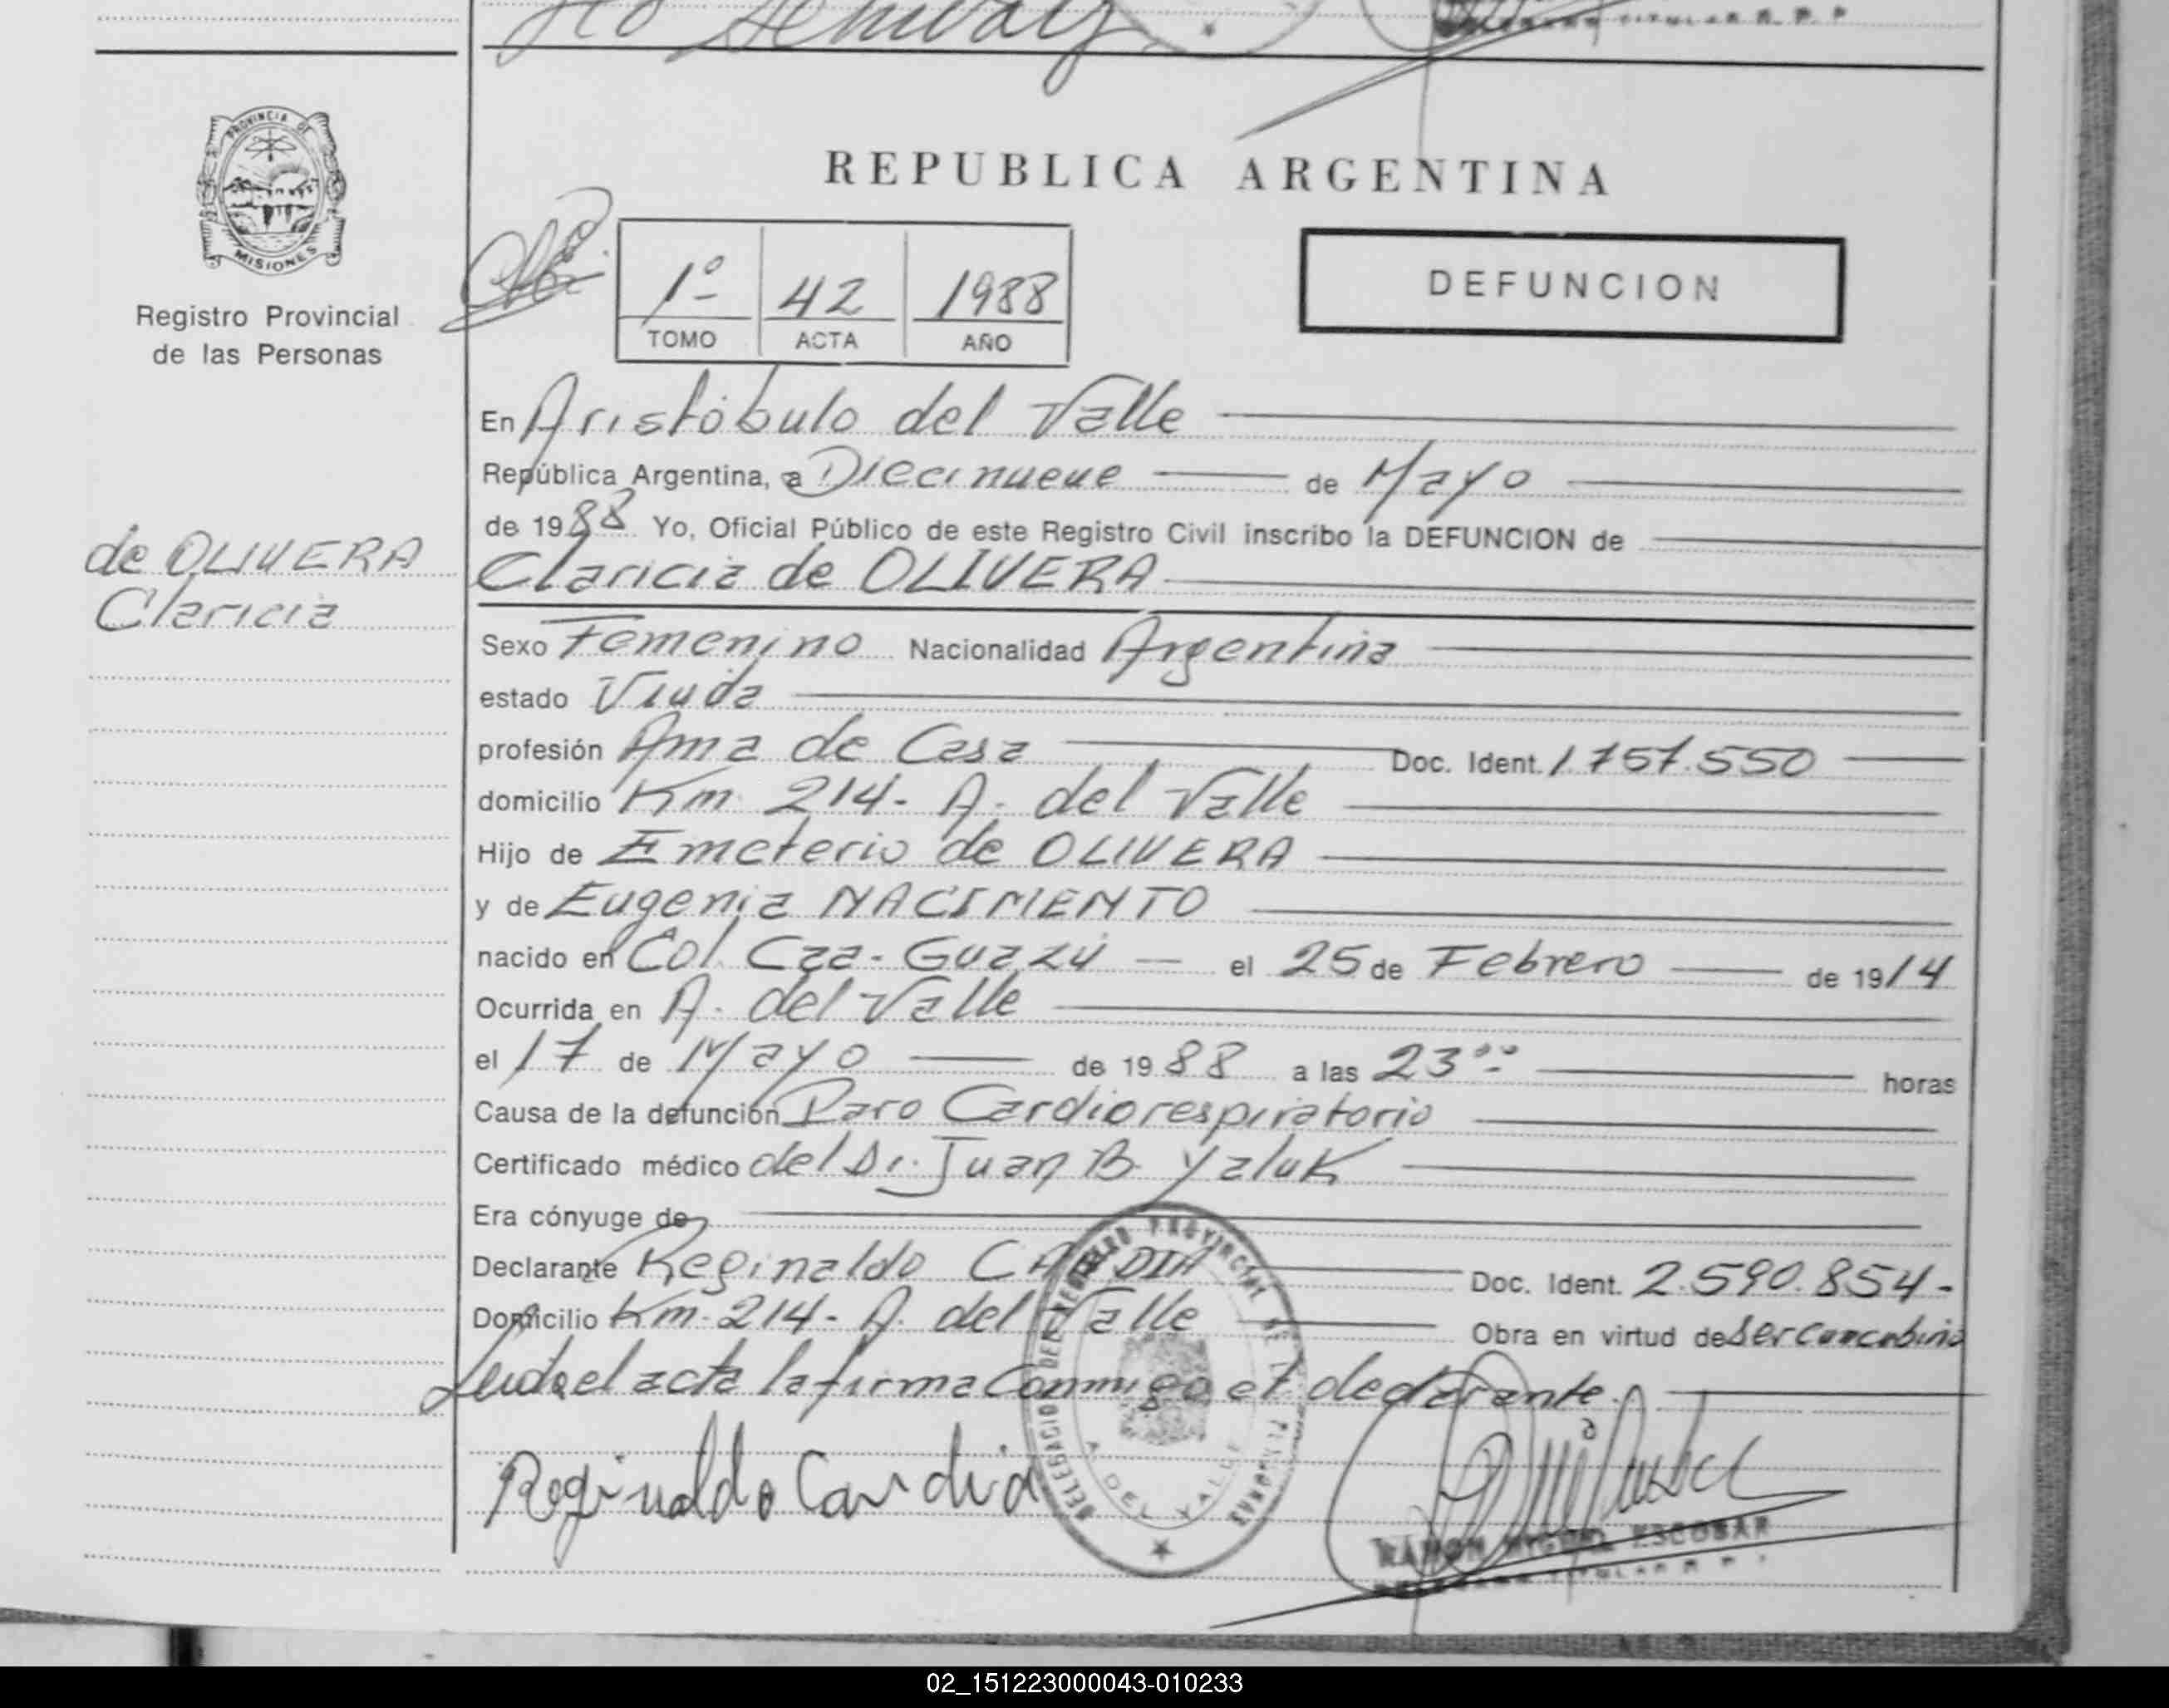 PROVINCIA DE
MISIONES
Registro Provincial
de las Personas
de OLIVERA
Claricia
REPUBLICA ARGENTINA
1º 42 1988
TOMO ACTA AÑO
DEFUNCION
En Aristóbulo del Valle
República Argentina, a Diecinueve de Mayo
de 1988 Yo, Oficial Público de este Registro Civil inscribo la DEFUNCION de
Claricia de OLIVERA
Sexo Femenino Nacionalidad Argentina
estado Viuda
profesión Ama de Casa Doc. Ident. 1.757.550
domicilio Km 214- A. del Valle
Hijo de Emeterio de OLIVERA
y de Eugenia NACIMENTO
nacido en Col. Cza-Guazú el 25 de Febrero de 1914
Ocurrida en A. del Valle
el 17 de Mayo de 1988 a las 23°° horas
Causa de la defunción Paro Cardiorespiratorio
Certificado médico del Dr. Juan B. Yaluk
Era cónyuge de
Declarante Reginaldo CANDIA Doc. Ident. 2.590.854-
Domicilio Km-214- A. del Valle Obra en virtud de ser concubino
Leida el acta la firma conmigo el declarante.
Reginaldo Candia
A. DEL VALLE
RAMON MIGUEL ESCOBAR
02_151223000043-010233